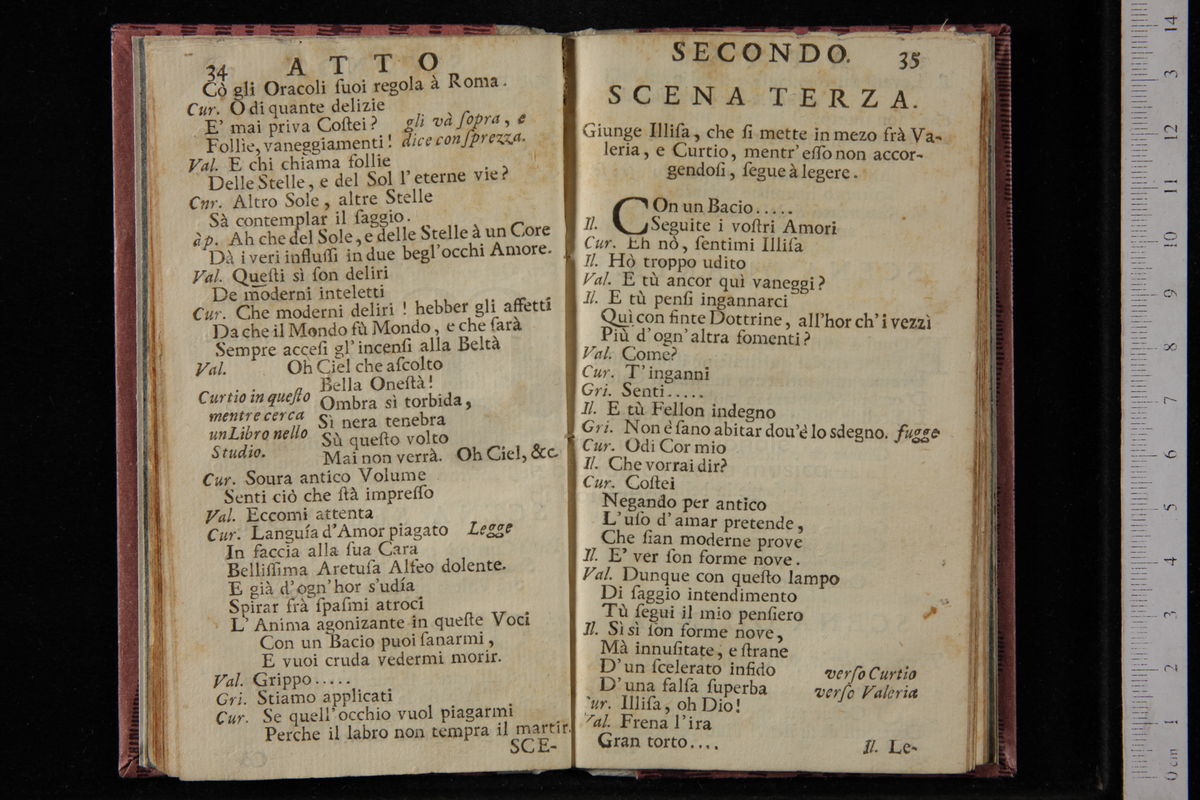 34 ATTO
Cò gli Oracoli ſuoi regola à Roma.
Cur. O di quante delizie
E' mai priva Coſtei? gli và ſopra, e
Follie, vaneggiamenti! dice con ſprezza.
Val. E chi chiama follie
Delle Stelle, e del Sol l'eterne vie?
Cnr. Altro Sole, altre Stelle
Sà contemplar il ſaggio.
àp. Ah che del Sole, e delle Stelle à un Core
Dà i veri influſſi in due begl'occhi Amore.
Val. Queſti sì ſon deliri
De moderni inteletti
Cur. Che moderni deliri! hebber gli affetti
Da che il Mondo fù Mondo, e che ſarà
Sempre acceſi gl'incenſi alla Beltà
Val. Oh Ciel che aſcolto
Bella Oneſtà!
Curtio in queſto Ombra sì torbida,
mentre cerca Sì nera tenebra
un Libro nello Sù queſto volto
Studio. Mai non verrà. Oh Ciel, &c.
Cur. Soura antico Volume
Senti ciò che ſtà impreſſo
Val. Eccomi attenta
Cur. Languía d'Amor piagato Legge
In faccia alla ſua Cara
Belliſſima Aretuſa Alfeo dolente.
E già d'ogn'hor s'udía
Spirar frà ſpaſmi atroci
L'Anima agonizante in queſte Voci
Con un Bacio puoi ſanarmi,
E vuoi cruda vedermi morir.
Val. Grippo.....
Gri. Stiamo applicati
Cur. Se quell'occhio vuol piagarmi
Perche il labro non tempra il martir.
SCE-
SECONDO. 35
SCENA TERZA.
Giunge Illiſa, che ſi mette in mezo frà Va-
leria, e Curtio, mentr'eſſo non accor-
gendoſi, ſegue à legere.
COn un Bacio.....
Il. Seguite i voſtri Amori
Cur. Eh nò, ſentimi Illiſa
Il. Hò troppo udito
Val. E tù ancor quì vaneggi?
Il. E tù penſi ingannarci
Quì con finte Dottrine, all'hor ch'i vezzì
Più d'ogn'altra fomenti?
Val. Come?
Cur. T'inganni
Gri. Senti.....
Il. E tù Fellon indegno
Gri. Non è ſano abitar dou'è lo sdegno. fugge
Cur. Odi Cor mio
Il. Che vorrai dir?
Cur. Coſtei
Negando per antico
L'uſo d'amar pretende,
Che ſian moderne prove
Il. E' ver ſon forme nove.
Val. Dunque con queſto lampo
Di ſaggio intendimento
Tù ſegui il mio penſiero
Il. Sì sì ſon forme nove,
Mà innuſitate, e ſtrane
D'un ſcelerato infido verſo Curtio
D'una falſa ſuperba verſo Valeria
Cur. Illiſa, oh Dio!
Val. Frena l'ira
Gran torto....
Il. Le-